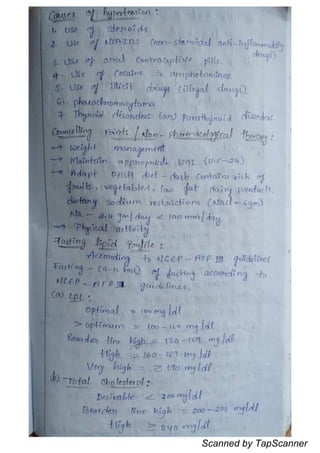 Causes of hypertension :
1. Use of steroids
2. Use of NSAIDS (non-steroidal anti-Inflammatory
drugs)
3. Use of oral contraceptive pills.
4. Use of Cocaine & amphetamines.
5. Use of Illicit drugs (illegal drugs).
6. phaeochromocytoma
7. Thyroid disorders (or) Parathyroid disorders.
Counselling Points / Non-pharmacological therapy :
→ Weight management
→ Maintain appropriate BMI
→ Adapt DASH diet - dash contains rich of
fruits, vegetables, low fat dairy products.
dietary sodium restrictions (Nacl - 6gm)
Na - 2.4 gm/day < 100 mm/day.
→ Physical activity
Fasting lipid Profile :
According to NCEP - ATP III guidelines
Fasting - (9-12 hrs) of fasting according to
NCEP - ATP III guidelines.
(a) LDL :
Optimal = 100 mg/dl
> optimum = 100 - mg/dl
Boarder line high = 130 - 159 mg/dl
High = 160 - 189 mg/dl
Very high = ≥ 190 mg/dl
(b) - Total Cholesterol :
Desirable < 200 mg/dl
Boarder line high = 200 - 239 mg/dl
High ≥ 240 mg/dl.
Scanned by TapScanner